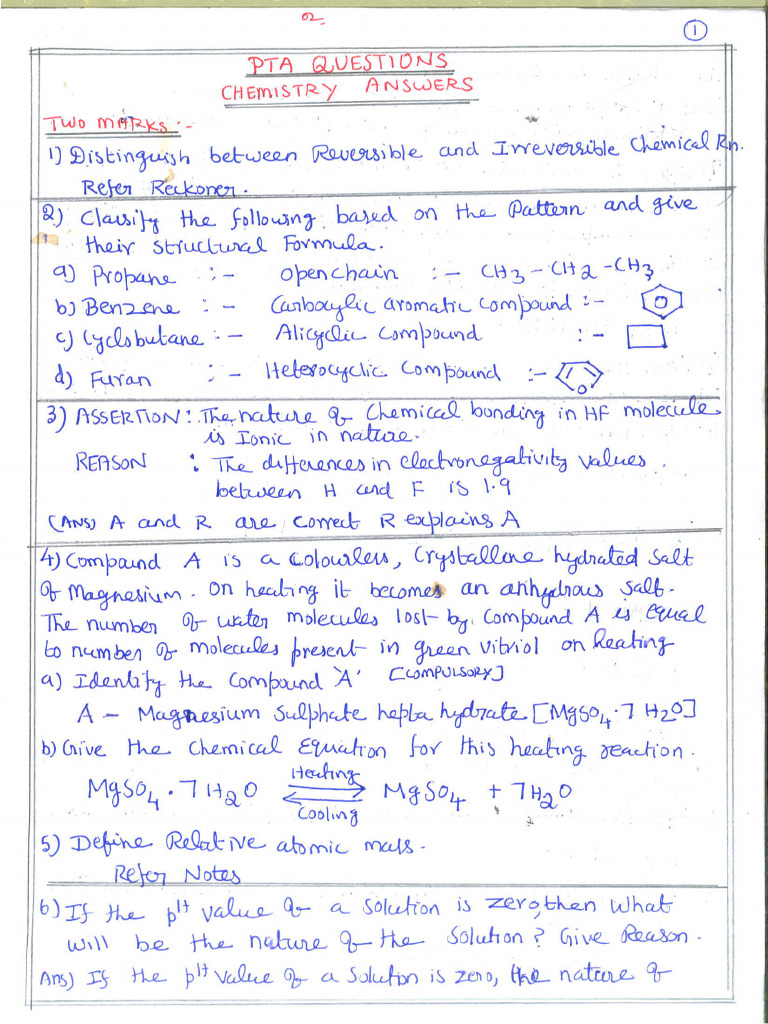 02
1
PTA QUESTIONS
CHEMISTRY ANSWERS
TWO MARKS :-
1) Distinguish between Reversible and Irreversible Chemical Rn.
Refer Reckoner.
2) Classify the following based on the Pattern and give
their structural Formula.
a) Propane :- openchain :- CH3 - CH2 - CH3
b) Benzene :- Carbocylic aromatic compound :-
c) Cyclobutane :- Alicyclic Compound :-
d) Furan :- Heterocyclic Compound :- O
3) ASSERTION : The nature of Chemical bonding in HF molecule
is Ionic in nature.
REASON : The differences in electronegativity values
between H and F is 1.9
(ANS) A and R are correct R explains A
4) Compound A is a colourless, Crystallene hydrated salt
of Magnesium. On heating it becomes an anhydrous salt.
The number of water molecules lost by Compound A is equal
to number of molecules present in green vitriol on heating
a) Identify the Compound 'A' [COMPULSORY]
A - Magnesium Sulphate hepta hydrate [MgSO4·7H2O]
b) Give the Chemical Equation for this heating reaction.
Heating
MgSO4 · 7H2O ⇌ MgSO4 + 7H2O
Cooling
5) Define Relative atomic mass.
Refer Notes
6) If the pH value of a solution is zero, then What
will be the nature of the Solution? Give Reason.
Ans) If the pH value of a solution is zero, the nature of